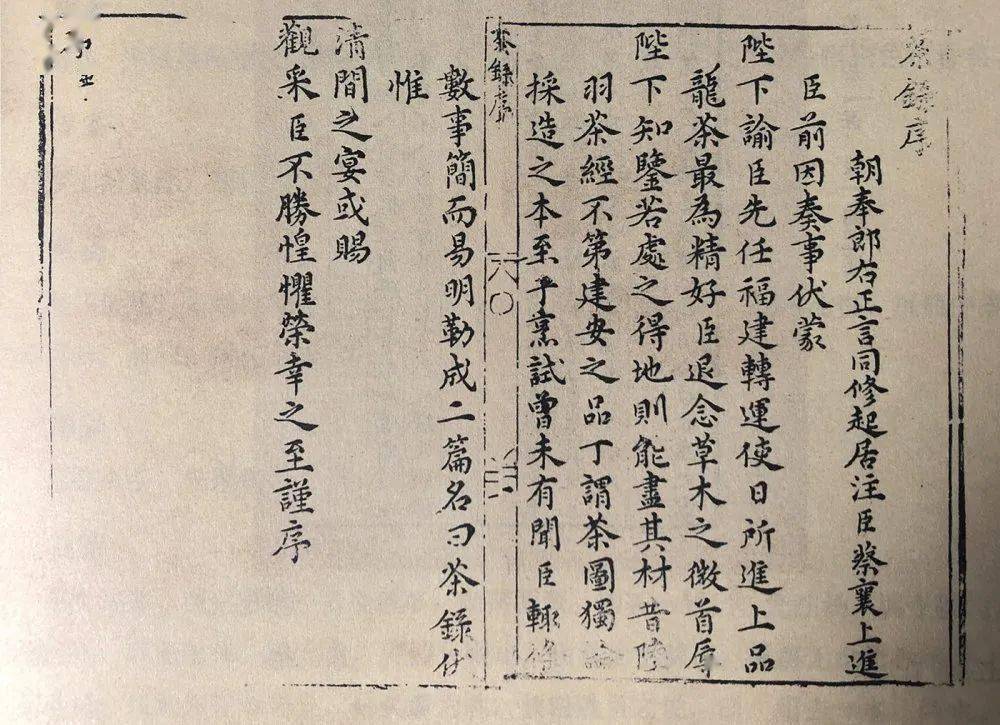 茶錄序
朝奉郎右正言同修起居注臣蔡襄上進
臣前因奏事伏蒙
陛下諭臣先任福建轉運使日所進上品
龍茶最為精好臣退念草木之微首辱
陛下知鑒若處之得地則能盡其材昔陸
羽茶經不第建安之品丁謂茶圖獨論
採造之本至于烹試曾未有聞臣輙條
茶錄序
數事簡而易明勒成二篇名曰茶錄伏
惟
清閒之宴或賜
觀采臣不勝惶懼榮幸之至謹序